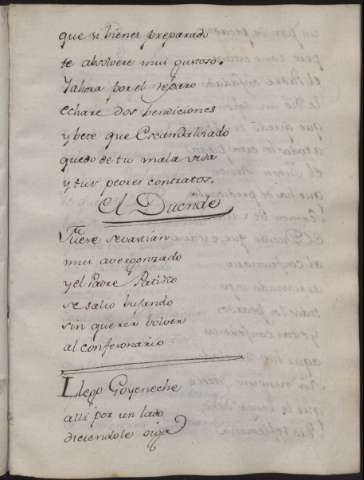 que si bienes preparado
te absolvere mui gustoso.
Y ahora por el reparo
echare dos bendiciones
y bete que Escandaliziado
quedo de tu mala vida
y tus peores contratos.
El Duende
Fuese sevastian
mui avergonzado
y el Padre Patiño
se salio bufando
sin querer bolver
al confesonario
Llegò Goyeneche
alli por un lado
diciendole oiga